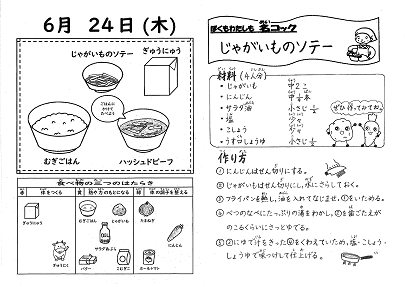 6月 24日(木)
じゃがいものソテー
ぎゅうにゅう
ごはんに
かけて
たべよう
むぎごはん
ハッシュドビーフ
食べ物の三つのはたらき
赤 体をつくる
黄 熱や力のもとになる
緑 体の調子を整える
ぎゅうにゅう
むぎごはん
じゃがいも
たまねぎ
サラダあぶら
にんじん
ぎゅうにく
バター
こむぎこ
ホールトマト
ぼくもわたしも 名コック
じゃがいものソテー
材料(4人分)
・じゃがいも 中2こ
・にんじん 中1/2本
・サラダ油 小さじ1/2
・塩 少々
・こしょう 少々
・うす口しょうゆ 小さじ1/2
ぜひ作ってみてね。
作り方
①にんじんはせん切りにする。
②じゃがいもはせん切りにし、水にさらしておく。
③フライパンを熱し、油を入れてなじませ、①をいためる。
④べつのなべにたっぷりの湯をわかし、②を歯ごたえが
のこるくらいにさっとゆでる。
⑤③にゆで汁をきった④をくわえていため、塩・こしょう・
しょうゆで味つけして仕上げる。